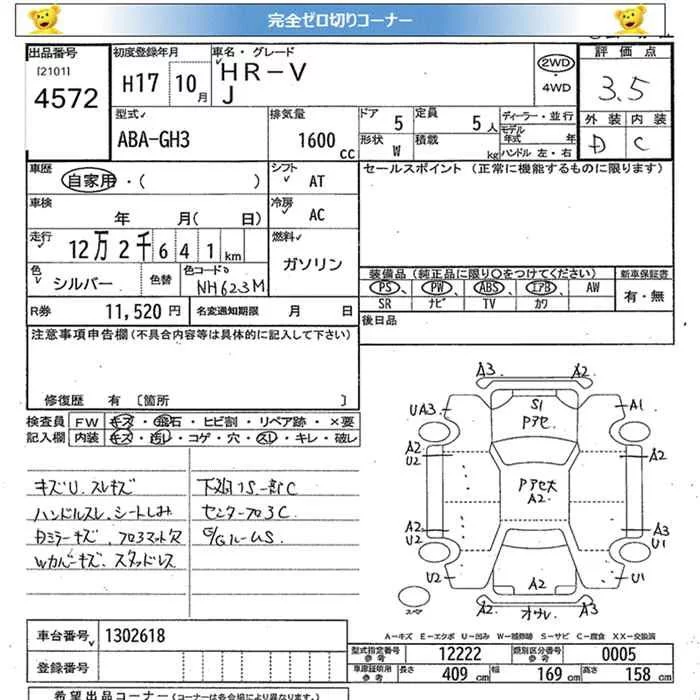 完全ゼロ切りコーナー
出品番号
[2101]
4572
初度登録年月
H17 10月
車名・グレード
HR-V
J
2WD
4WD
評価点
3.5
外装 内装
D C
型式
ABA-GH3
排気量
1600 cc
ドア 5
形状 W
定員 5人
積載 kg
ディーラー・並行
モデル年式 年
ハンドル 左・右
車歴
自家用・( )
シフト
AT
セールスポイント (正常に機能するものに限ります)
車検
年 月( 日)
冷房
AC
走行
12万2千641km
燃料
ガソリン
色
シルバー
色替
色コードNo
NH623M
装備品(純正品に限り○をつけてください)
PS PW ABS エアB AW
SR ナビ TV カワ
新車保証書
有・無
R券 11,520円
名変通知期限 月 日
後日品
注意事項申告欄(不具合内容等は具体的に記入して下さい)
修復歴 有 〔箇所 〕
検査員記入欄
FW キズ・飛石・ヒビ割・リペア跡・×要
内装 キズ・汚レ・コゲ・穴・スレ・キレ・破レ
キズU.スレキズ
ハンドルスレ、シートしみ
Wカバーキズ、スタッドレス
センターフロ3C
A3 A2
UA3 S1 A1
Pアセ
A2 U2 A2
Pアセ大
A2
A2 U2 A3 U1
U2 A2 U1
A2 オウレ A3
スペア
A-キズ E-エクボ U-凹み W-補修跡 S-サビ C-腐食 XX-交換済
車台番号 1302618
型式指定番号 参考 12222
類別区分番号 参考 0005
登録番号
車庫証明用 参考 長さ 409 cm 幅 169 cm 高さ 158 cm
希望出品コーナー(コーナーは各会場により異なります。)